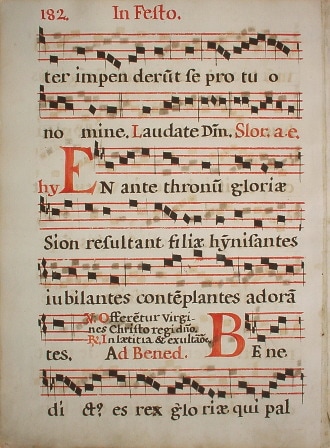 182. In Festo.
ter impen derūt se pro tu o
no mine. Laudate Dm̄. Slor. a.e.
hy EN ante thronū gloriæ
Sion resultant filiæ hỹnisantes
iubilantes contẽplantes adorā
tes. ℣. Offerẽtur Virgi-
nes Christo regi dño.
℟. In lætitia & exultaõe.
Ad Bened. BE ne.
di ct? es rex glo riæ qui pal